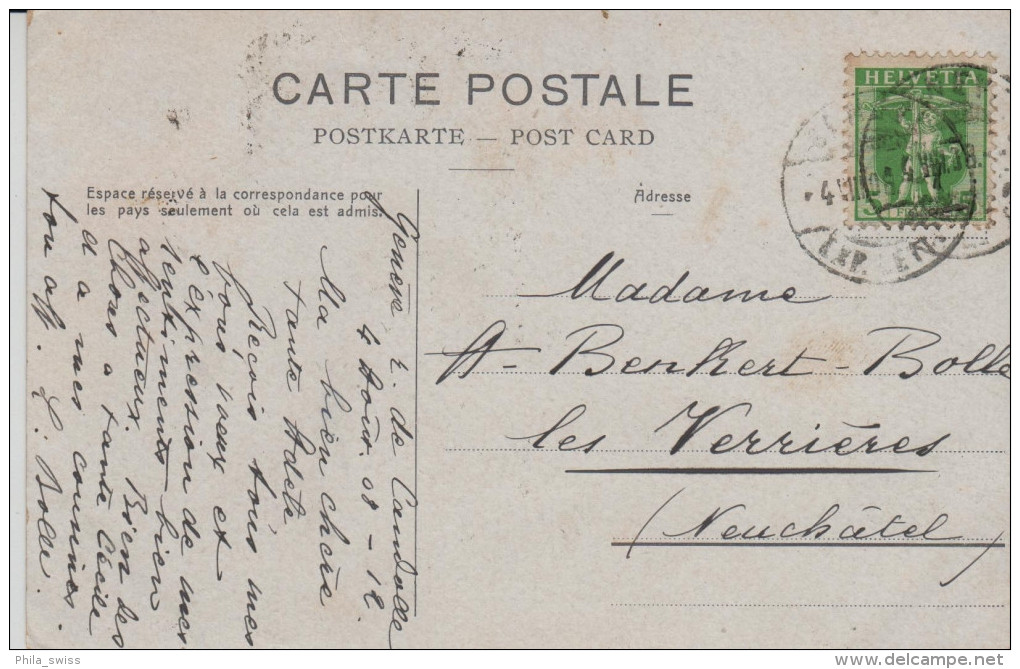 CARTE POSTALE
POSTKARTE — POST CARD
Espace réservé à la correspondance pour
les pays seulement où cela est admis.
Adresse
HELVETIA
Genève r. de Candolle
4 Août. 08 - 18
Ma bien chère
Tante Adèle
Reçois tous mes
bons vœux et
l'expression de mes
sentiments bien
affectueux. Bien des
choses à tante Cécile
et à mes cousines.
ton aff. E. Bolle.
Madame
A- Benkert-Bolle
les Verrières
(Neuchâtel)
EXP. LEN.
Phila_swiss